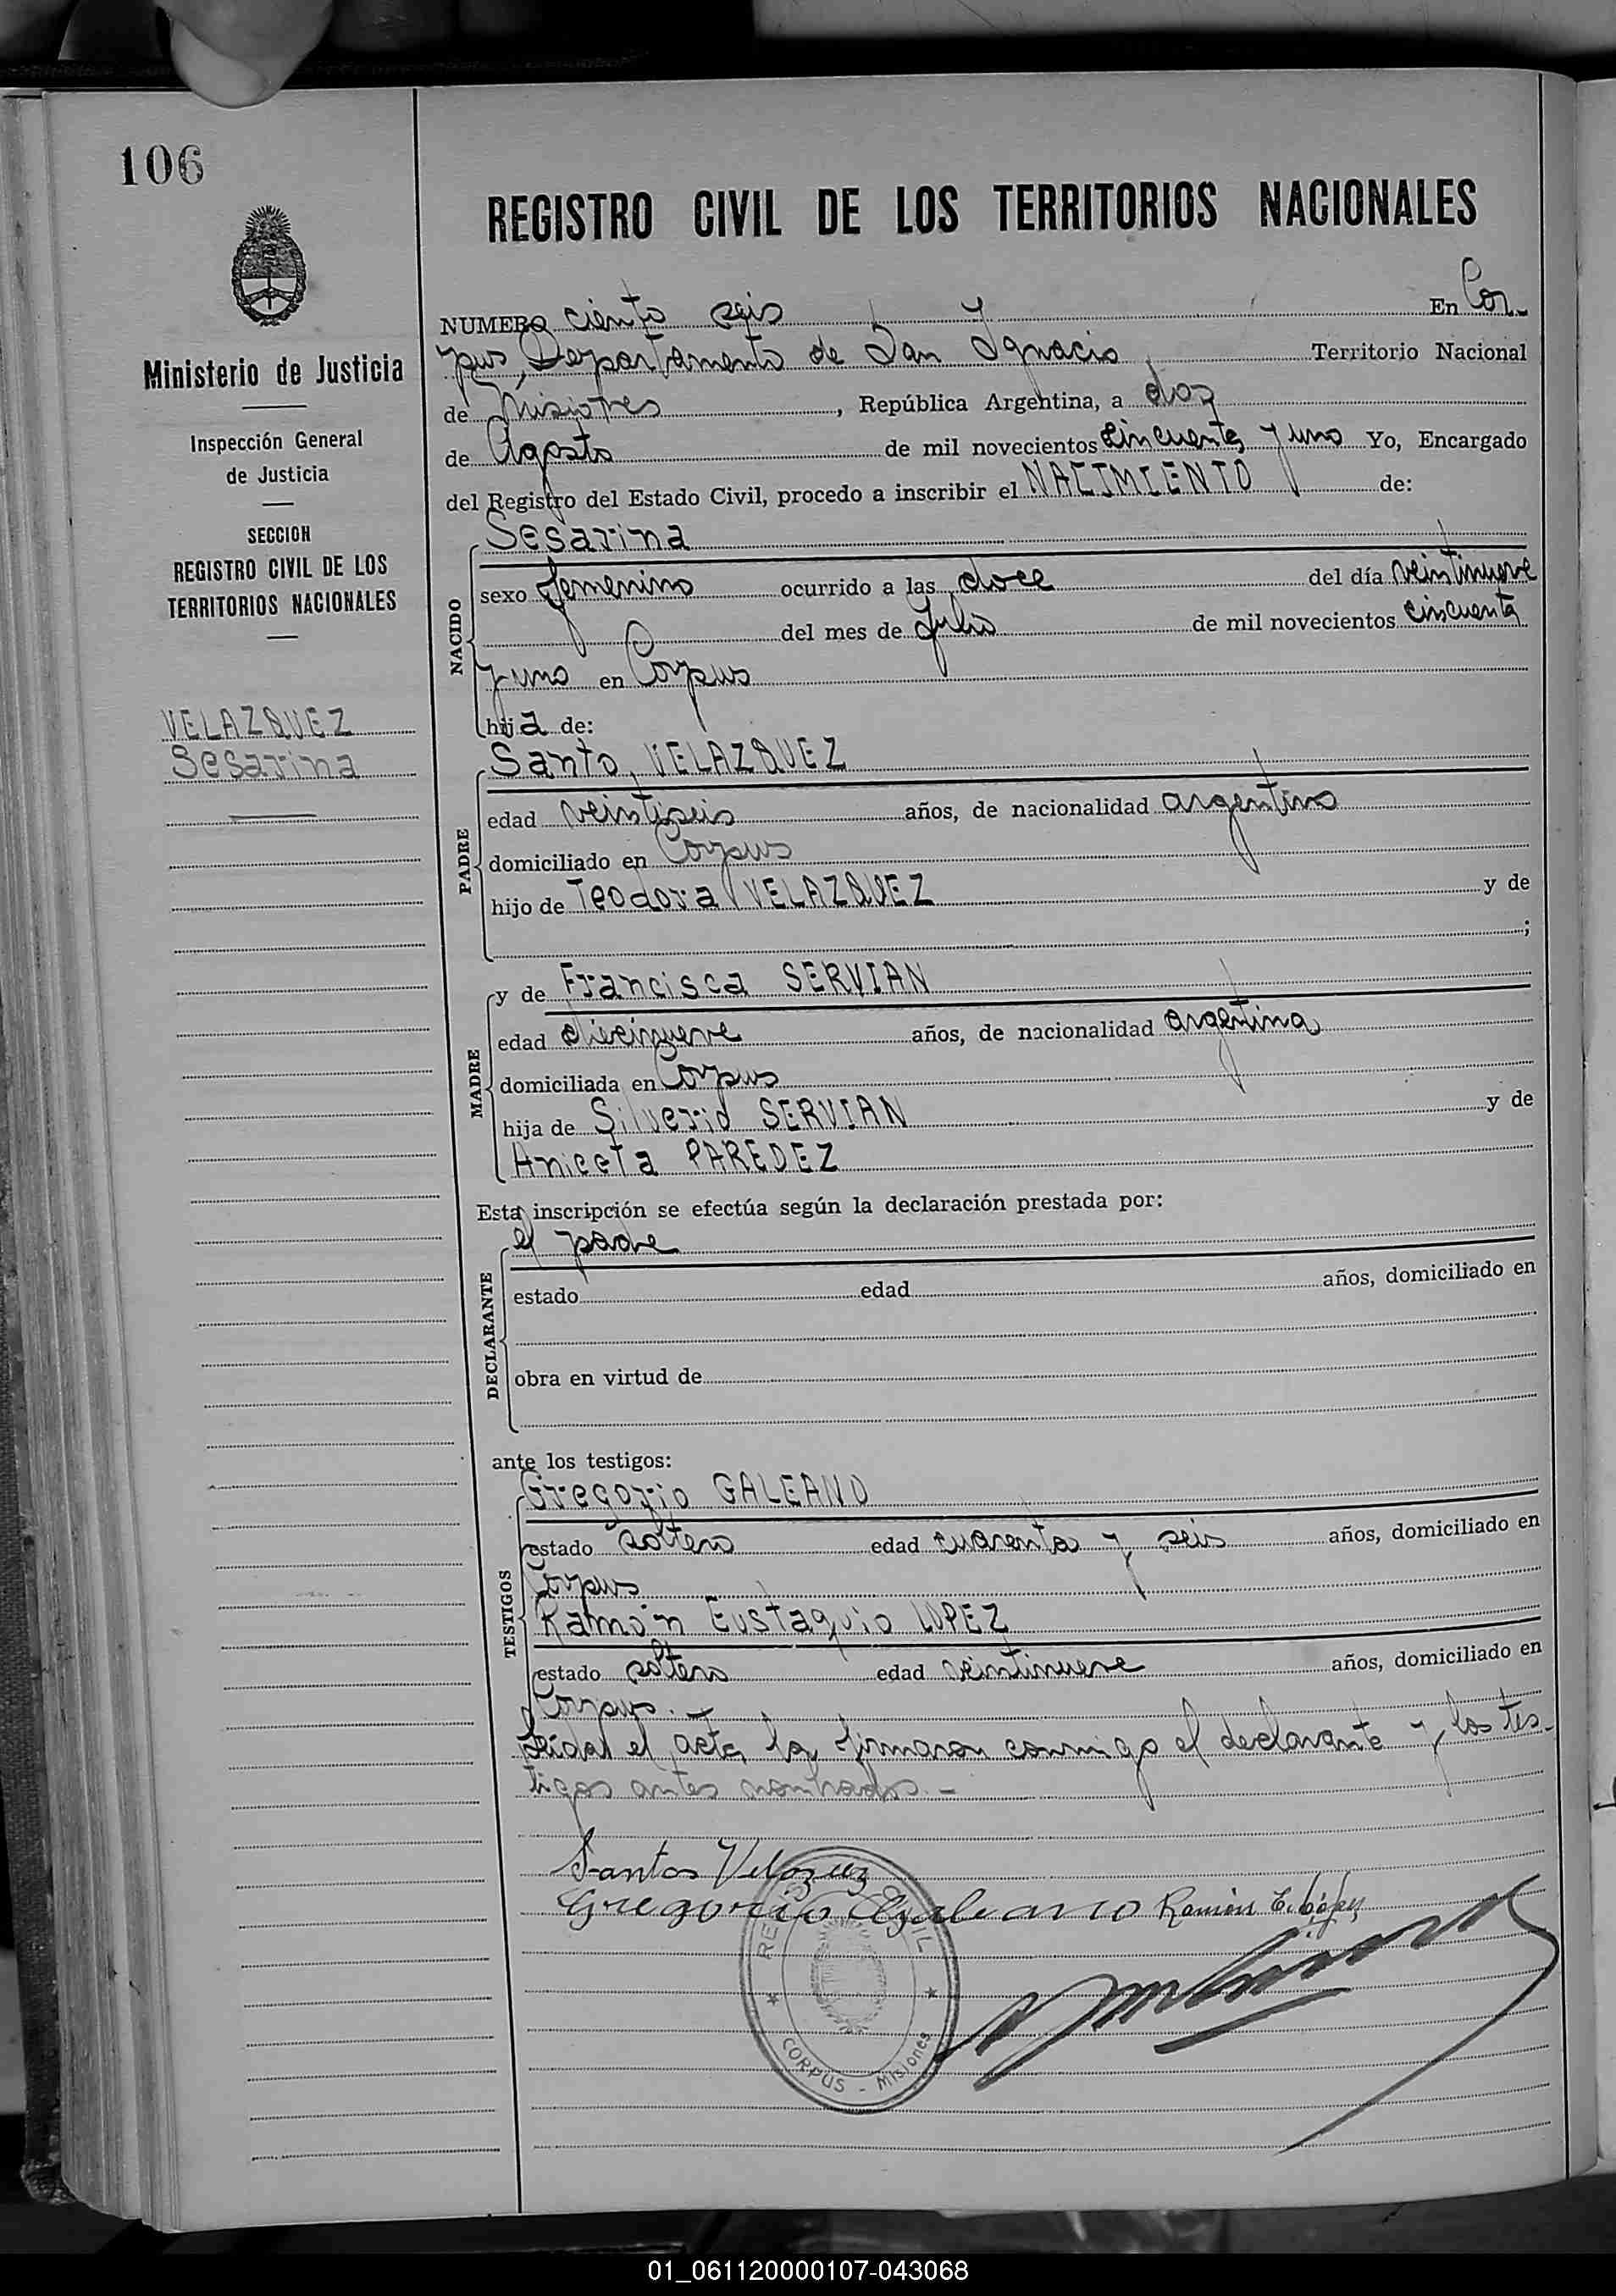 106
REGISTRO CIVIL DE LOS TERRITORIOS NACIONALES
Ministerio de Justicia
Inspección General
de Justicia
SECCION
REGISTRO CIVIL DE LOS
TERRITORIOS NACIONALES
VELAZQUEZ
Sesarina
NUMERO ciento seis En Cor-
pus, Departamento de San Ignacio Territorio Nacional
de Misiones, República Argentina, a dos
de Agosto de mil novecientos cincuenta y uno Yo, Encargado
del Registro del Estado Civil, procedo a inscribir el NACIMIENTO de:
NACIDO
Sesarina
sexo femenino ocurrido a las doce del día veintinueve
del mes de Julio de mil novecientos cincuenta
y uno en Corpus
hija de:
PADRE
Santo, VELAZQUEZ
edad veintiseis años, de nacionalidad argentino
domiciliado en Corpus
hijo de Teodora VELAZQUEZ y de
;
MADRE
y de Francisca SERVIAN
edad diecinueve años, de nacionalidad argentina
domiciliada en Corpus
hija de Silverio SERVIAN y de
Aniceta PAREDEZ
Esta inscripción se efectúa según la declaración prestada por:
DECLARANTE
el padre
estado edad años, domiciliado en
obra en virtud de
ante los testigos:
TESTIGOS
Gregorio GALEANO
estado soltero edad cuarenta y seis años, domiciliado en
Corpus
Ramón Eustaquio LOPEZ
estado soltero edad veintinueve años, domiciliado en
Corpus. —
Leída el acta, la firmaron conmigo el declarante y los tes-
tigos antes nombrados. -
Santos Velazuez
Gregorio Galeano Ramón E. López
CORPUS - Misiones
01_061120000107-043068